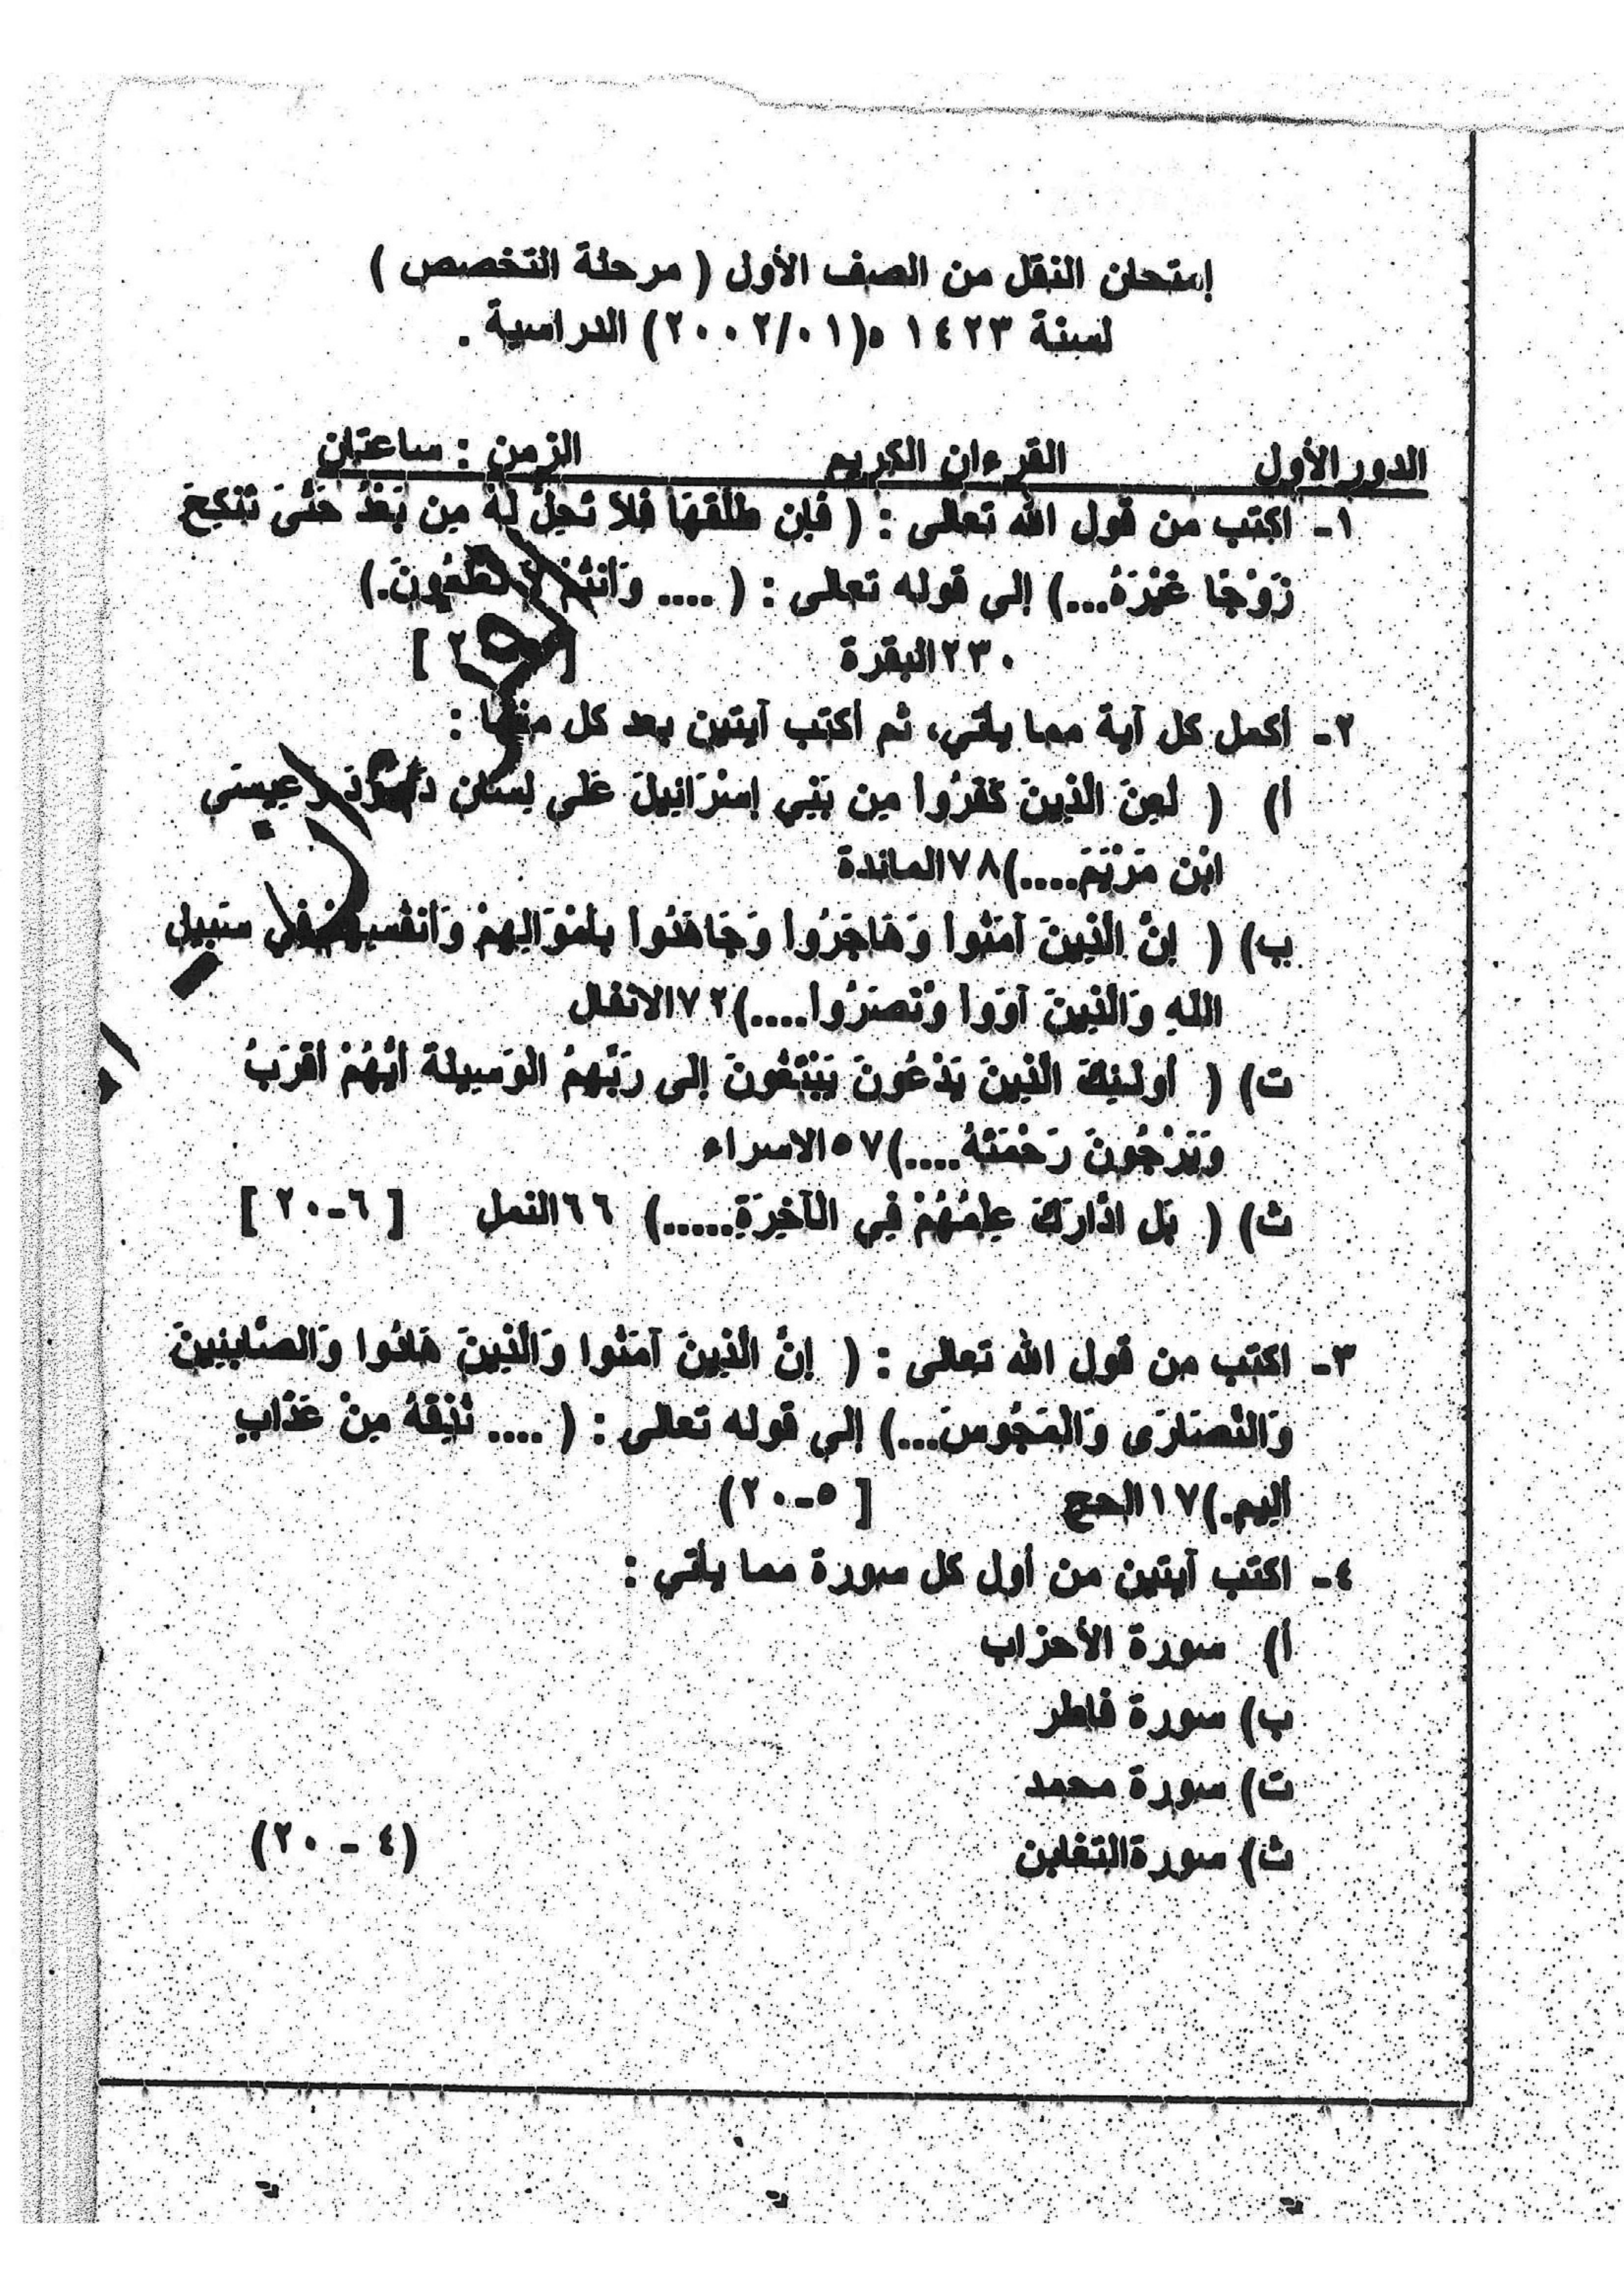 إمتحان النقل من الصف الأول ( مرحلة التخصص )
لسنة ١٤٢٣ ه(٢٠٠٢/٠١) الدراسية .
الدور الأول القرءان الكريم الزمن : ساعتان
١- اكتب من قول الله تعالى : ( فَإِن طَلَّقَهَا فَلاَ تَحِلُّ لَهُ مِن بَعْدُ حَتَّىَ تَنْكِحَ
زَوْجًا غَيْرَهُ...) إلى قوله تعالى : ( .... وَأَنتُمْ لاَ تَعْلَمُونَ.)
٢٣٠البقرة
٢- أكمل كل آية مما يأتي، ثم أكتب آيتين بعد كل منها :
أ) ( لُعِنَ الَّذِينَ كَفَرُوا مِن بَنِي إِسْرَائِيلَ عَلَى لِسَانِ دَاوُودَ وَعِيسَى
ابْنِ مَرْيَمَ....)٧٨المائدة
ب) ( إِنَّ الَّذِينَ آمَنُوا وَهَاجَرُوا وَجَاهَدُوا بِأَمْوَالِهِمْ وَأَنفُسِهِمْ فِي سَبِيلِ
اللهِ وَالَّذِينَ آوَوا وَّنَصَرُوا....)٧٢الانفال
ت) ( أُولَئِكَ الَّذِينَ يَدْعُونَ يَبْتَغُونَ إِلَى رَبِّهِمُ الْوَسِيلَةَ أَيُّهُمْ أَقْرَبُ
وَيَرْجُونَ رَحْمَتَهُ....)٥٧الاسراء
ث) ( بَلِ ادَّارَكَ عِلْمُهُمْ فِي الْآخِرَةِ.....) ٦٦النمل [ ٦-٢٠ ]
٣- اكتب من قول الله تعالى : ( إِنَّ الَّذِينَ آمَنُوا وَالَّذِينَ هَادُوا وَالصَّابِئِينَ
وَالنَّصَارَى وَالْمَجُوسَ...) إلى قوله تعالى : ( .... نُذِقْهُ مِنْ عَذَابٍ
أليم.)١٧الحج [ ٥-٢٠)
٤- اكتب آيتين من أول كل سورة مما يأتي :
أ) سورة الأحزاب
ب) سورة فاطر
ت) سورة محمد
ث) سورةالتغابن (٤ - ٢٠)